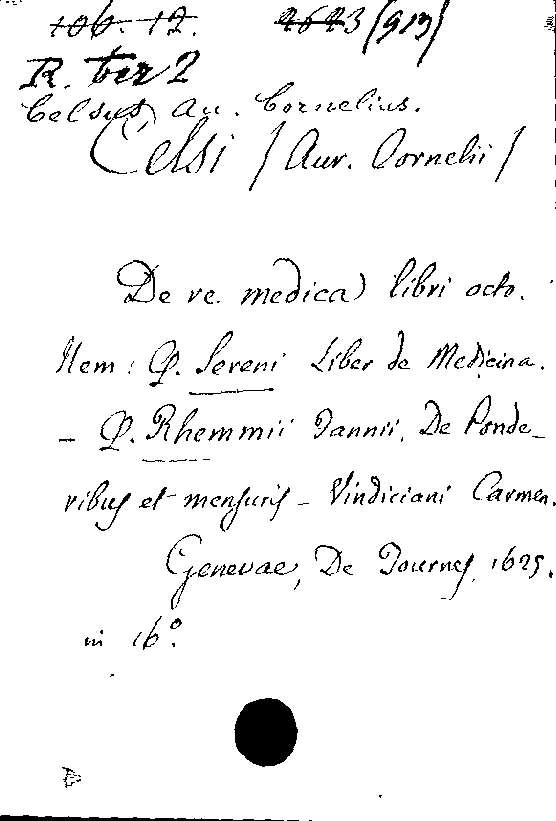 106. 17. 4643 (913)
R. ter 2
Celsus, Au. Cornelius.
Celsi / Aur. Cornelii /
De re medica libri octo.
Item : Q. Sereni Liber de Medicina.
- Q. Rhemmii Fannii, De Ponde-
ribus et mensuris - Vindiciani Carmen.
Genevae, De Tournes, 1625.
in 16º.